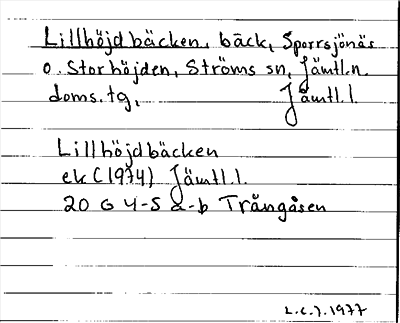 Lillhöjdbäcken, bäck, Sporrsjönäs
o. Storhöjden, Ströms sn, Jämtl.n.
doms.tg, Jämtl.l.
Lillhöjdbäcken
ek (1974) Jämtl.l.
20 G 4-5 a-b Trångåsen
L.C.J. 1977